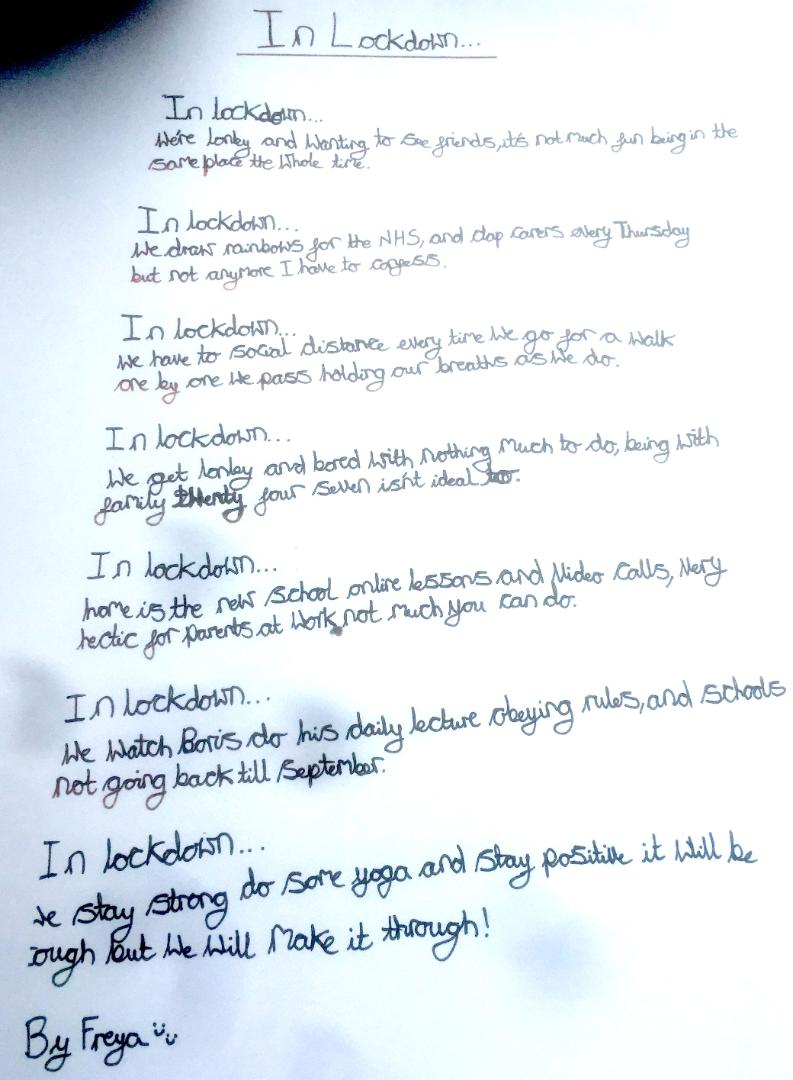 In Lockdown...
In lockdown...
We're lonley and wanting to see friends, it's not much fun being in the
same place the whole time.
In lockdown...
We draw rainbows for the NHS, and clap carers every Thursday
but not anymore I have to cogfess.
In lockdown...
We have to social distance every time we go for a walk
one by one we pass holding our breaths as we do.
In lockdown...
We get lonley and bored with nothing much to do, being with
family twenty four seven isn't ideal too.
In lockdown...
home is the new school online lessons and video calls, very
hectic for parents at work not much you can do.
In lockdown...
We watch Boris do his daily lecture obeying rules, and schools
not going back till September.
In lockdown...
we stay strong do some yoga and stay positive it will be
ough but we will make it through!
By Freya